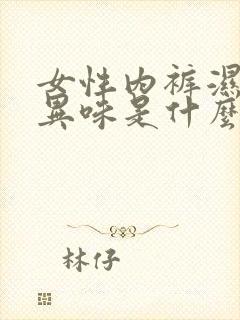 女性内裤濕
異味是什麼
林仔